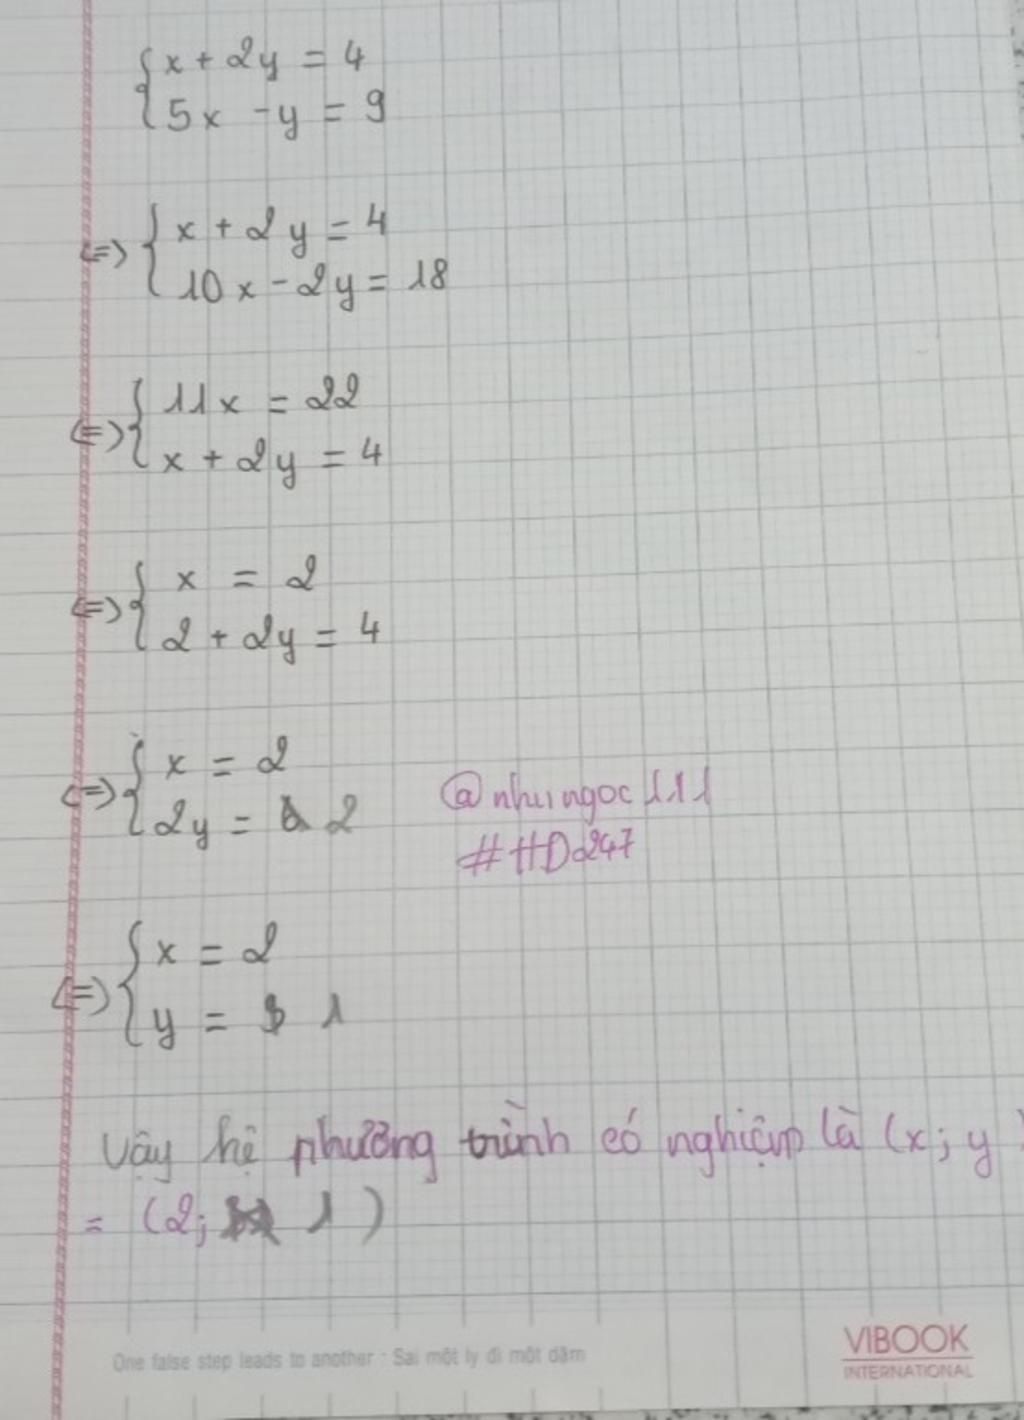 x + 2y = 4
5x - y = 9
<=> x + 2y = 4
10x - 2y = 18
<=> 11x = 22
x + 2y = 4
<=> x = 2
2 + 2y = 4
<=> x = 2
2y = 2
@nhungoc111
##D247
<=> x = 2
y = 1
Vậy hệ phương trình có nghiệm là (x; y)
= (2; 1)
One false step leads to another : Sai một ly đi một dặm
VIBOOK
INTERNATIONAL